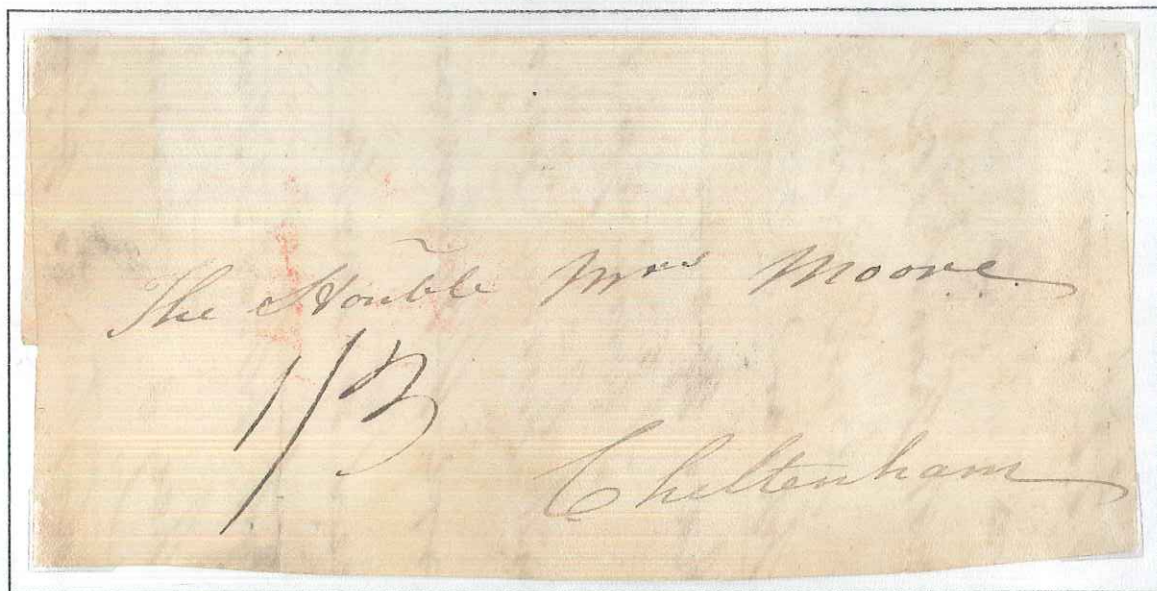 The Honble Mrs Moore
1/3
Cheltenham